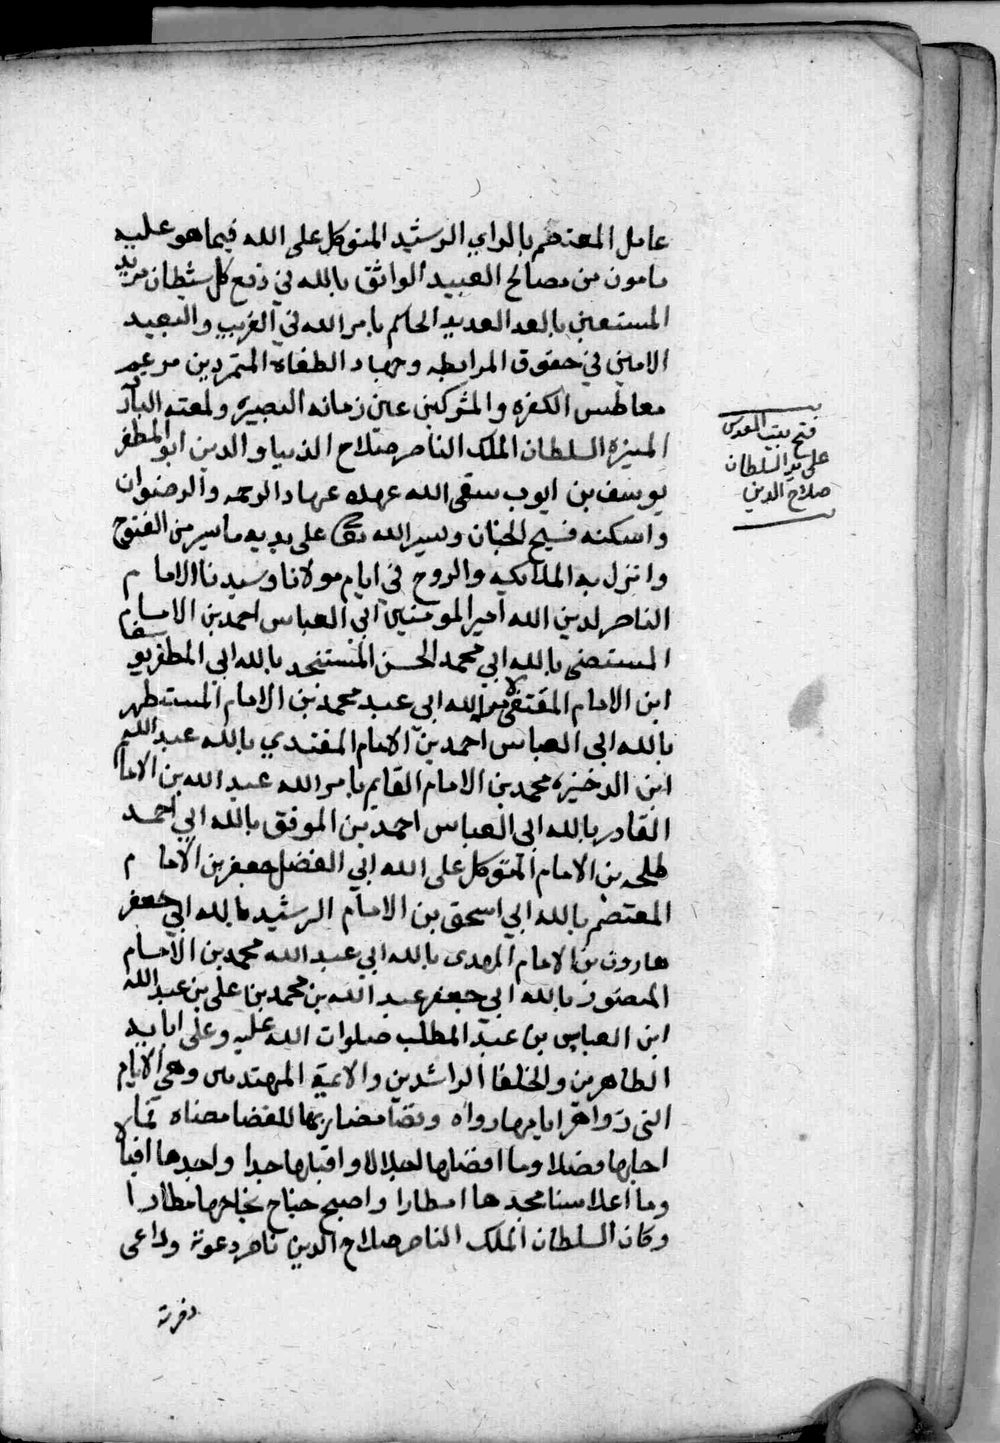 عامل المعتصم بالراي الرشيد المتوكل على الله فيما هو عليه
مامون من مصالح العبيد الواثق بالله في دفع كل شيطان مريد
المستعين بالعد العديد الحاكم بامر الله في القريب والبعيد
الامين في حقوق المرابطه وجهاد الطغاة المتمردين مرغم
معاطس الكفره والمشركين عين زمانه البصيره ولمعته
المنيره السلطان الملك الناصر صلاح الدنيا والدين ابو المظفر
يوسف بن ايوب سقى الله عهده عهاد الرحمه والرضوان
واسكنه فسيح الجنان ويسر الله على يديه ما يسر من الفتوح
وانزل به الملائكيه والروح في ايام مولانا وسيدنا الامام
الناصر لدين الله امير المومنين ابي العباس احمد بن الامام
المستضي بالله ابي محمد الحسن المستنجد بالله ابي المظفر يوسف
ابن الامام المقتفي لامر الله ابي عبد محمد بن الامام المستظهر
بالله ابي العباس احمد بن الامام المقتدي بالله عبد الله
ابن الدخيره محمد بن الامام القايم بامر الله عبد الله بن الامام
القادر بالله ابي العباس احمد بن الموفق بالله ابي احمد
طلحه بن الامام المتوكل على الله ابي الفضل جعفر بن الامام
المعتصم بالله ابي اسحق بن الامام الرشيد بالله ابي جعفر
هارون بن الامام المهدي بالله ابي عبد الله محمد بن الامام
المنصور بالله ابي جعفر عبد الله بن محمد بن علي بن عبد الله
ابن العباس بن عبد المطلب صلوات الله عليه وعلى ابايه
الطاهرين والخلفا الراشدين والايمة المهتدين وهي الايام
التي زواهر ايامها رواه مضاربها للقضا مضاه فما
اجلها فضلا وما افضلها اجلالا واقبلها جدا واجدها اقبالا
وما اعلا سنا مجدها واصبح جناح نجاحها مطارا
وكان السلطان الملك الناصر صلاح الدين ناصر دعوته وداعي
فتح بيت المقدس
على يد السلطان
صلاح الدين